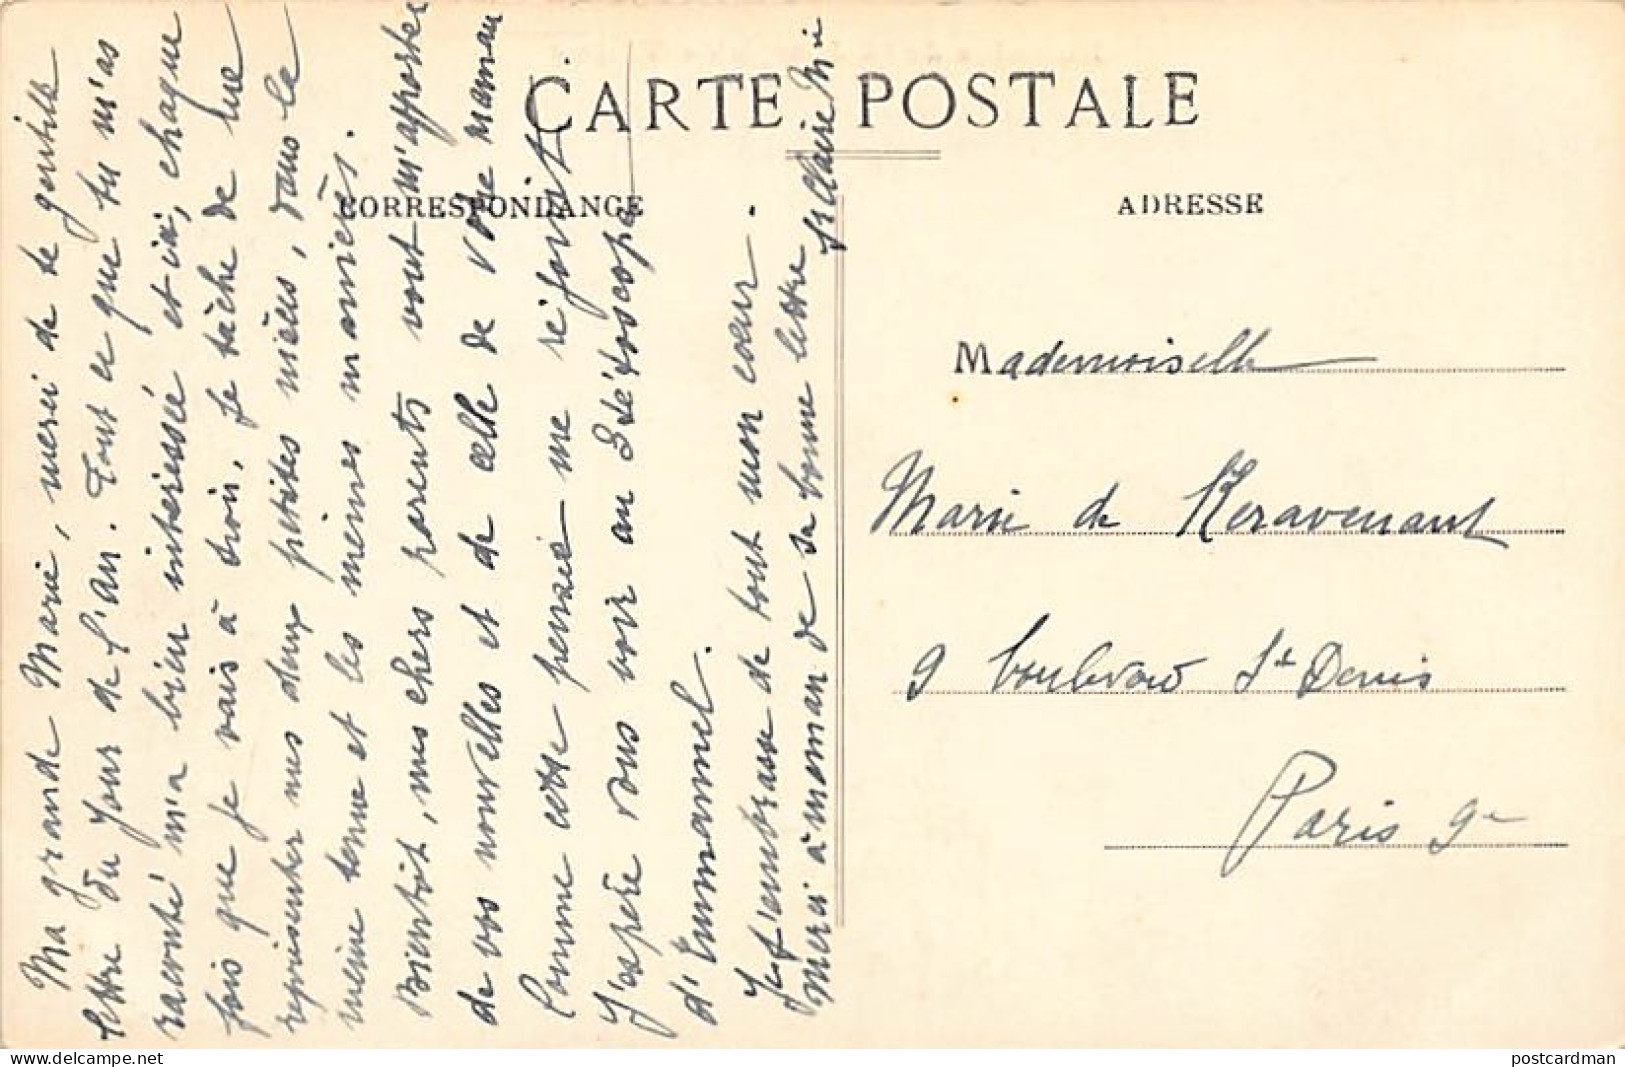 CARTE POSTALE
CORRESPONDANCE
ADRESSE
Ma grande Marie, merci de ta gentille
lettre du jour de l'an. Tout ce que tu m'as
raconté m'a bien interessée et ici, chaque
fois que je vais à , je tâche de me
représenter mes deux petites nièces, dans la
même tenue et les mêmes manières.
Bientôt, mes chers parents vont m'apporter
de vos nouvelles et de celle de votre maman
Comme cette pensée me réjouit.
J'espère vous voir au Stétoscope
d'Emmanuel.
Je t'embrasse de tout mon cœur.
Merci à maman de sa bonne lettre Claire M
Mademoiselle
Marie de Keravenant
9 boulevard St Denis
Paris 9e
postcardman